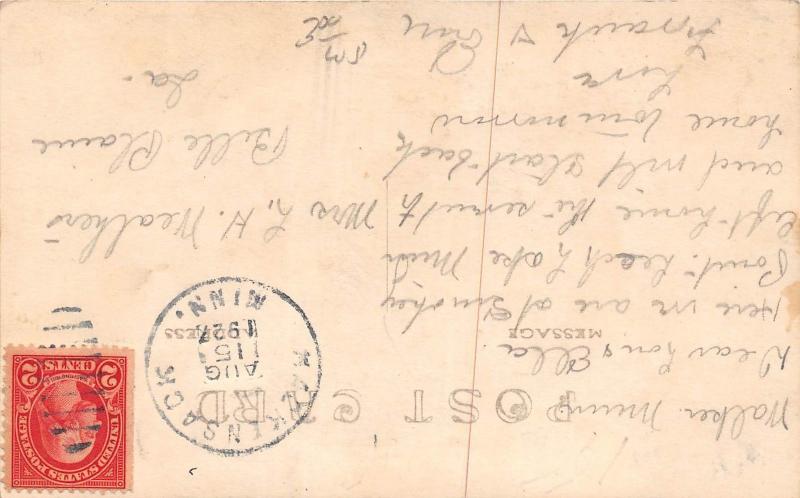 POST CARD
MESSAGE
ADDRESS
Walker Minn
Dear Lou & Ella
Here we are at Smokey
Point. Leach Lake Minn
left home the seventh
and will start back
home tomorrow
Love
Frank & Em
HACKENSACK
MINN.
AUG
15
1927
UNITED STATES POSTAGE
WASHINGTON
2 CENTS 2
Mrs L. H. Mealhers
Belle Plaine
Ia.